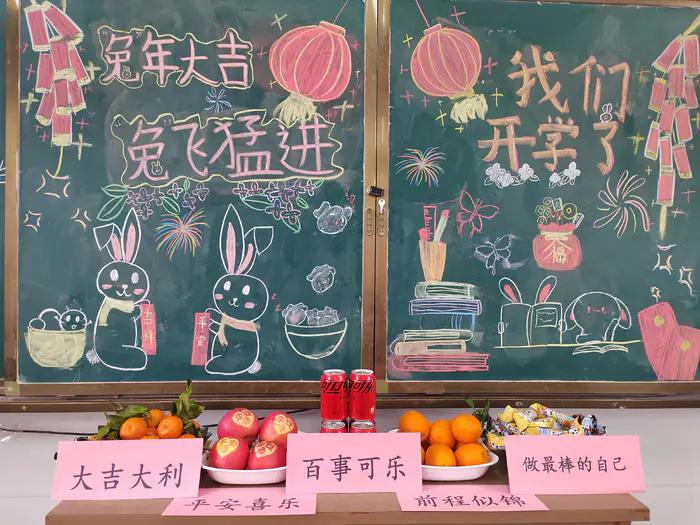 兔年大吉
兔飞猛进
我们
开学了
吉祥
平安
福
可口可乐
大吉大利
百事可乐
做最棒的自己
平安喜乐
前程似锦